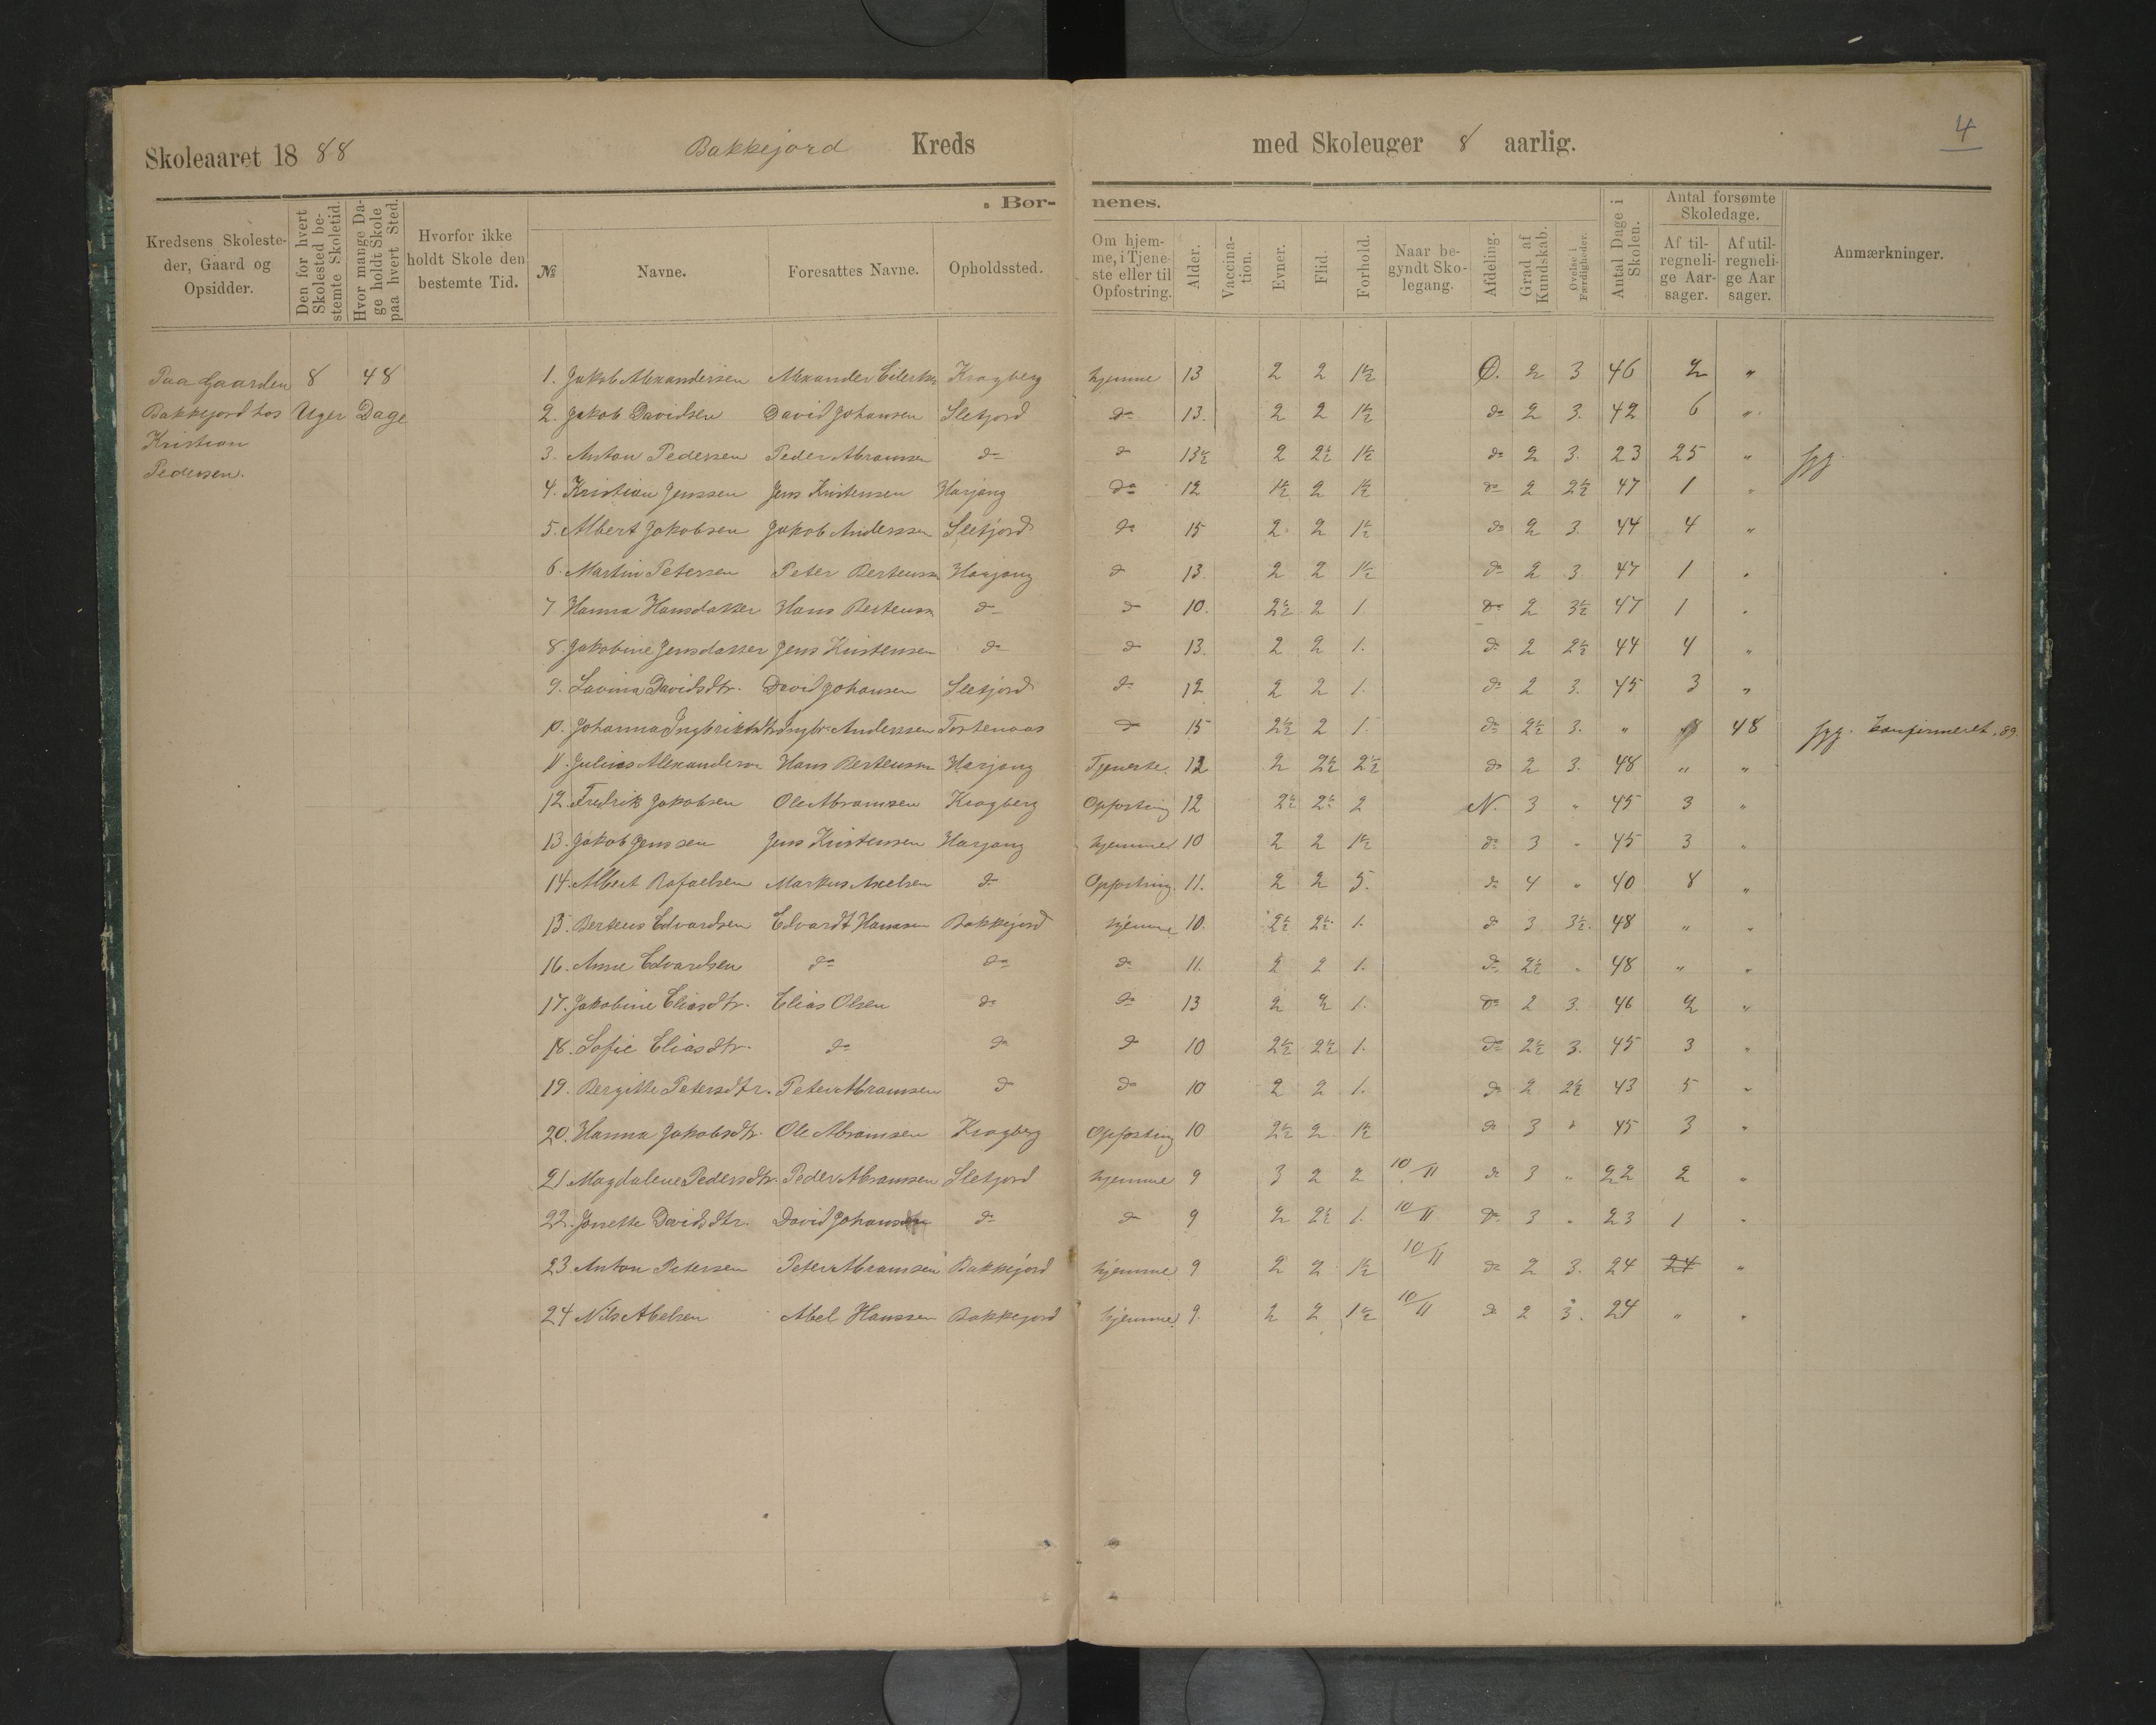 4
Skoleaaret 18 88 Bakkejord Kreds med Skoleuger 8 aarlig.
Børnenes.
Kredsens Skolesteder, Gaard og Opsidder.
Den for hvert Skolested bestemte Skoletid.
Hvor mange Dage holdt Skole paa hvert Sted.
Hvorfor ikke holdt Skole den bestemte Tid.
№ Navne. Foresattes Navne. Opholdssted.
Om hjemme, i Tjeneste eller til Opfostring.
Alder.
Vaccination.
Evner.
Flid.
Forhold.
Naar begyndt Skolegang.
Afdeling.
Grad af Kundskab.
Øvelse i Færdigheder.
Antal Dage i Skolen.
Antal forsømte Skoledage.
Af tilregnelige Aarsager.
Af utilregnelige Aarsager.
Anmærkninger.
Paa Gaarden 8 48
Bakkejord hos Uger Dage
Kristian
Pedersen.
1. Jakob Alexandersen Alexander Eilertsn Kragberg hjemme 13 2 2 1½ Ø. 2 3 46 2 "
2. Jakob Davidsen David Johansen Sletjord do 13. 2 2 1½ do 2 3. 42 6 "
3. Anton Pedersen Peder Abramsen do do 13½ 2 2½ 1½ do 2 3. 23 25 " syg.
4. Kristian Jenssen Jens Kristensen Harjang do 12 1½ 2 1½ do 2 2½ 47 1 "
5. Albert Jakobsen Jakob Anderssen Sletjord do 15 2 2 1½ do 2 3. 44 4 "
6. Martin Petersen Peter Berteussn Harjang do 13. 2 2 1½ do 2 3. 47 1 "
7. Hanna Hansdatter Hans Berteussn do do 10. 2½ 2 1 do 2 3½ 47 1 "
8. Jakobine Jensdatter Jens Kristensen do do 13. 2 2 1. do 2 2½ 44 4 "
9. Lavina Davidsdtr. David Johansen Sletjord do 12 2 2 1. do 2 3. 45 3 "
10. Johanna Ingbriktsdtr Ingbr. Anderssen Tortenaas do 15 2½ 2 1. do 2½ 3. " 48 syg. Konfirmeret, 89.
11. Julius Alexandersn Hans Berteussn Harjang Tjeneste. 12 2 2½ 2½ do 2 3. 48 " "
12. Fredrik Jakobsen Ole Abramsen Kragberg Opfostring 12 2½ 2½ 2 N. 3 " 45 3 "
13. Jakob Jenssen Jens Kristensen Harjang hjemme 10 2 2 1½ do 3 " 45 3 "
14. Albert Rafaelsen Markus Axelsen do Opfostring. 11. 2 2 5. do 4 " 40 8 "
15. Berteus Edvardsen Edvardt Hanssen Bakkejord hjemme 10. 2½ 2½ 1. do 3 3½. 48 " "
16. Anne Edvardsen do do do 11. 2 2 1. do 2½ " 48 " "
17. Jakobine Eliasdtr. Elias Olsen do do 13 2 2 1. do 2 3. 46 2 "
18. Sofie Eliasdtr. do do do 10 2½ 2½ 1. do 2½ 3. 45 3 "
19. Bergitte Petersdtr. Peter Abramsen do do 10 2 2 1. do 2 2½ 43 5 "
20. Hanna Jakobsdtr. Ole Abramsen Kragberg Opfostring 10 2½ 2 1½ do 3 " 45 3 "
21. Magdalene Pedersdtr. Peder Abramsen Sletjord hjemme 9 3 2 2 10/11 do 3 " 22 2 "
22. Jonette Davidsdtr. David Johansen do do 9 2 2½ 1. 10/11 do 3 " 23 1 "
23. Anton Petersen Peter Abramsen Bakkejord hjemme 9 2 2 1½ 10/11 do 2 3. 24 24 "
24 Nils Abelsen Abel Hanssen Bakkejord hjemme 9. 2 2 1½ 10/11 do 2 3. 24 " "